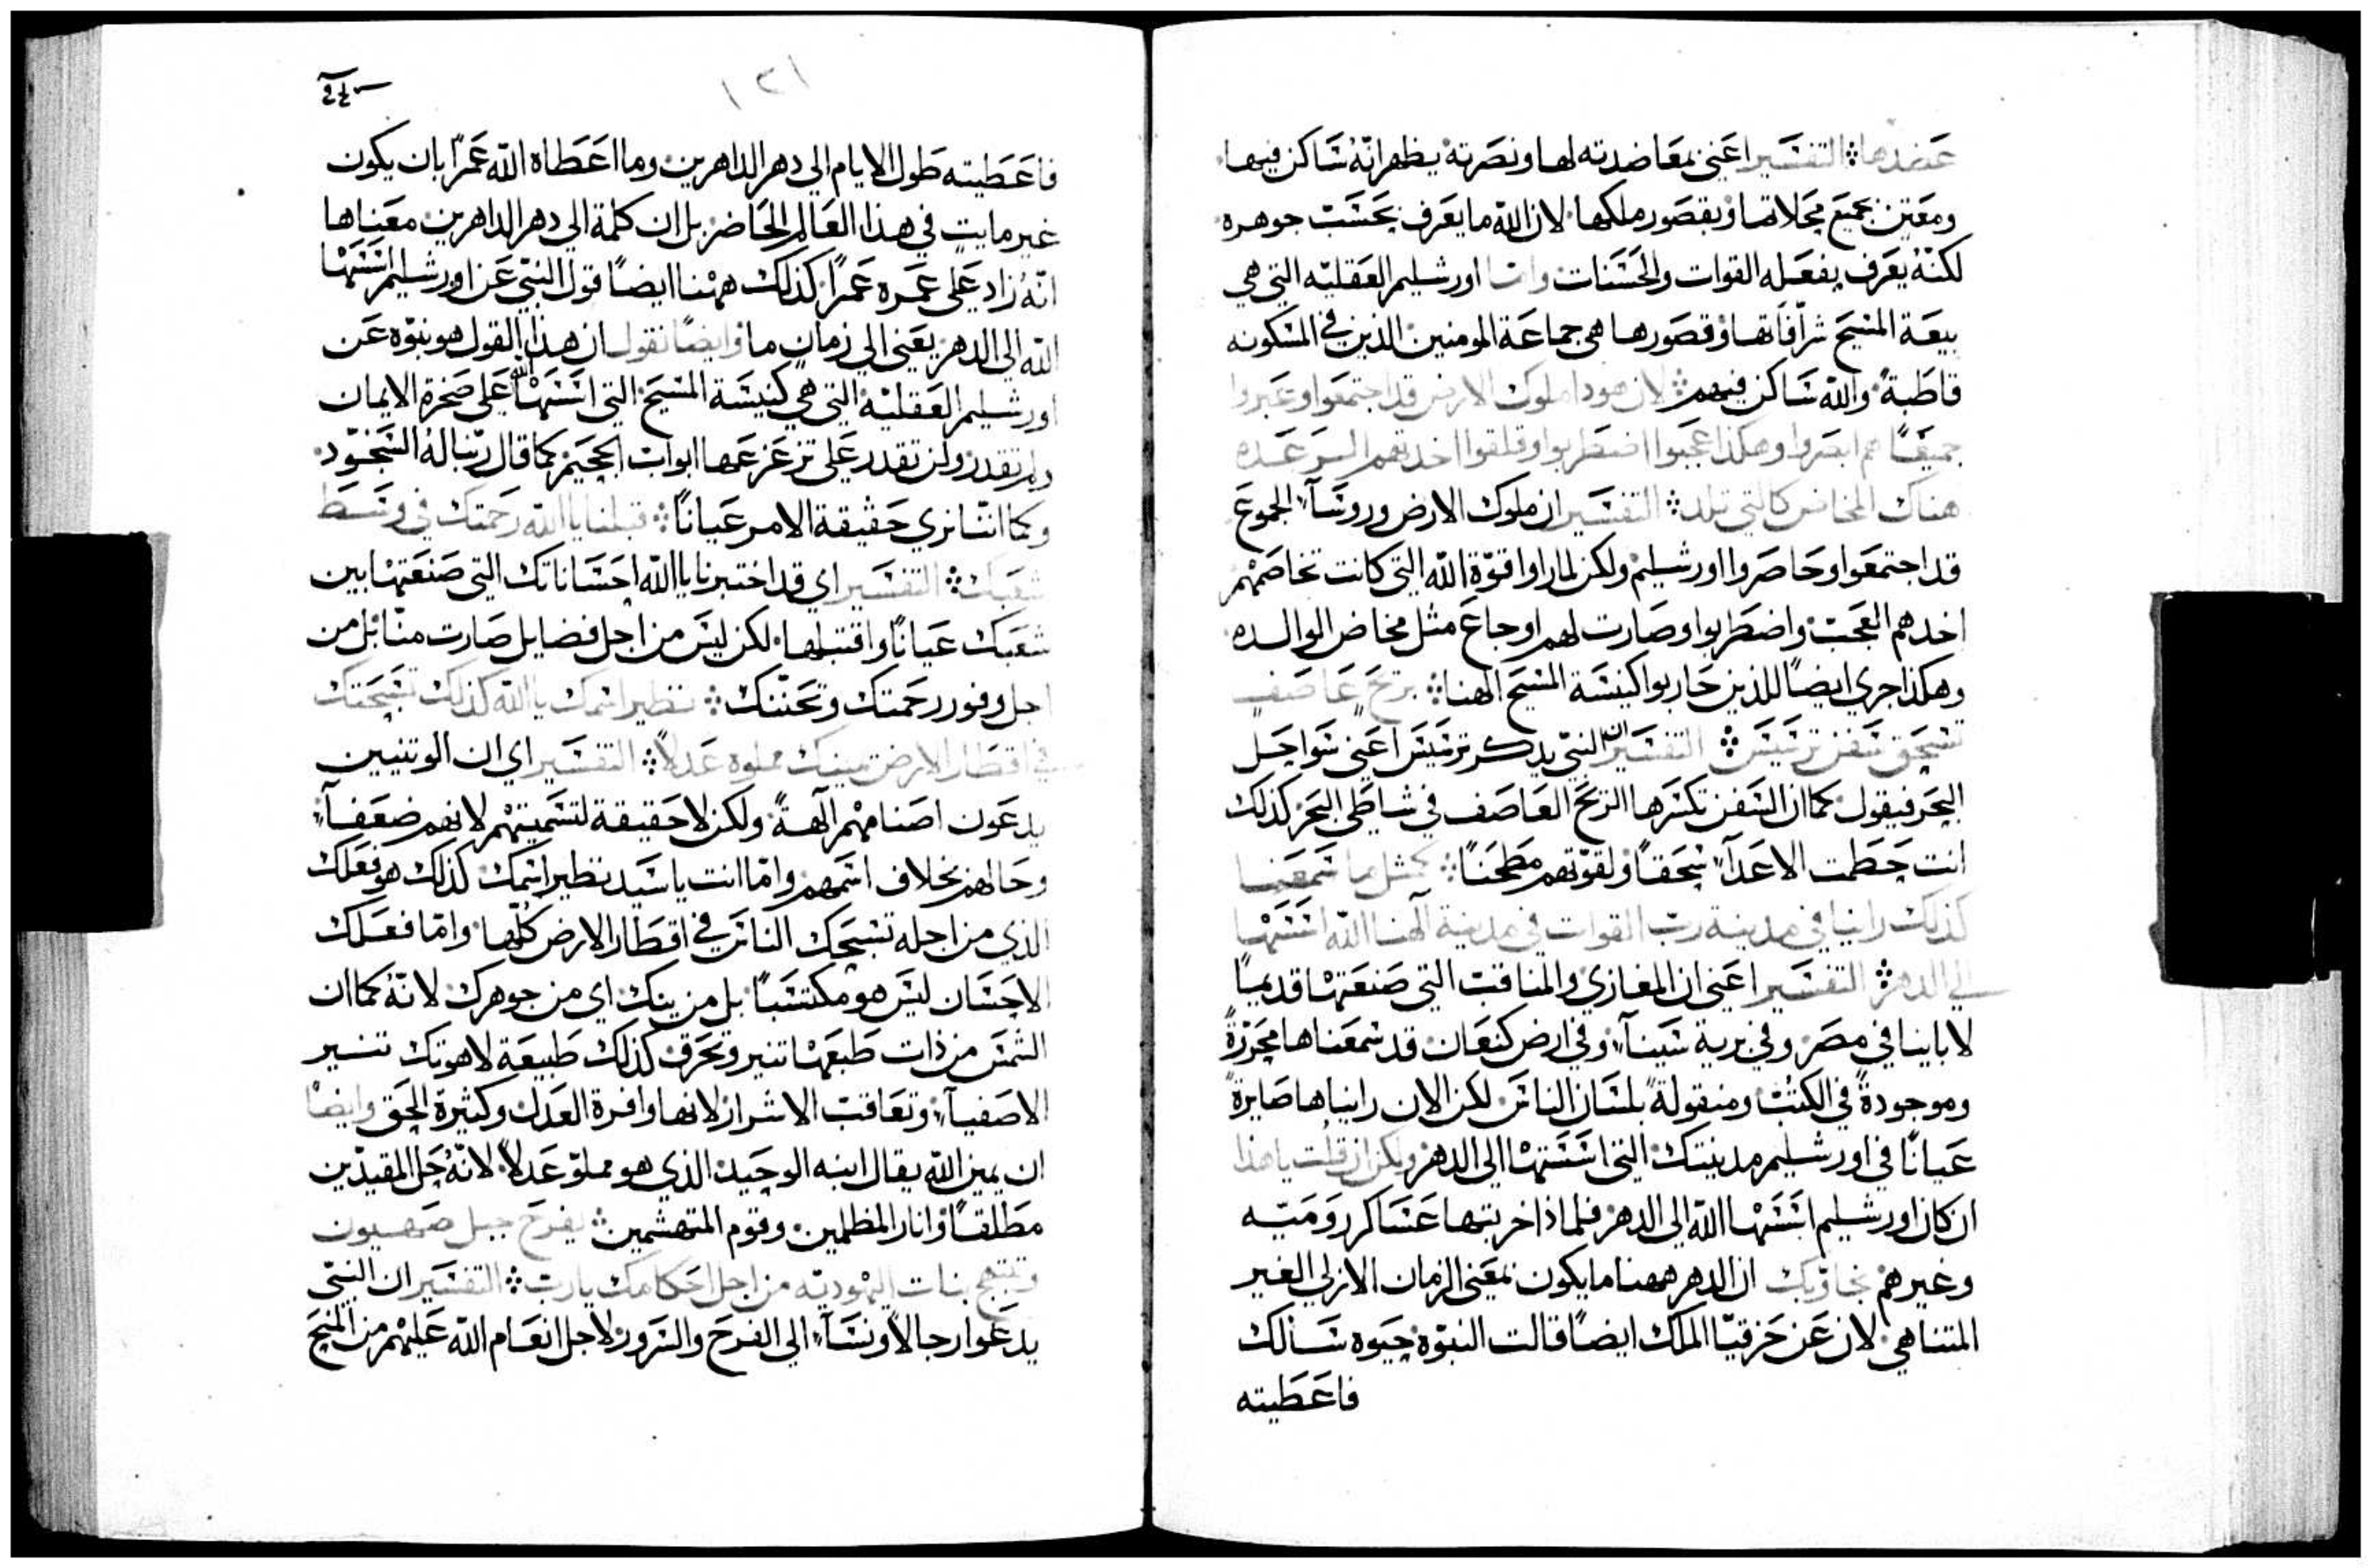 عضدها ܀ التفسير اعني بمعاضدته لها ونصرته يظهر انّهُ ساكن فيها
ومعتني بجميع محلاتها وبقصور ملكها لان الله ما يعرف بحسب جوهره
لكنّهُ يعرف بفعله القوات والحسنات وامّا اورشليم العقليّه التي هي
بيعة المسيح شرّافاتها وقصورها هي جماعة المومنين الذين في المسكونه
قاطبةً والله ساكن فيهم ܀ لان هوذا ملوك الارض قد اجتمعوا وعبروا
جميعًا هم ابصروا وهكذا عجبوا اضطربوا وقلقوا اخدتهم الرعده
هناك المخاض كالتي تلد ܀ التفسير ان ملوك الارض وروسآء الجموع
قد اجتمعوا وحاصروا اورشليم ولكن لما راوا قوّة الله التي كانت تخاصمهم
اخدهم العجب واضطربوا وصارت لهم اوجاع مثل مخاض الوالده
وهكذا جري ايضًا للذين حاربوا كنيسة المسيح الهنا ܀ بريح عاصف
تسحق سفن ترسيس ܀ التفسير ان النبيّ يذكر ترسيس اعني سواحل
البحر فيقول كما ان السفن تكسرها الريح العاصف في شاطي البحر كذلك
انت حطمت الاعدآء سحقًا ولقوّتهم مطحنًا ܀ كمثل ما سمعنا
كذلك راينا في مدينة ربّ القوات في مدينة آلهنا الله اسّسها
الي الدهر ܀ التفسير اعني ان المغازي والمناقب التي صنعتها قديمًا
لابائنا في مصر وفي برية سينآء وفي ارض كنعان قد سمعناها محرّرةً
وموجودةً في الكتب ومنقولةً بلسان الناس لكن الان رايناها صايرةً
عيانًا في اورشليم مدينتك التي اسّستها الي الدهر ولكن ان قلت ياهذا
ان كان اورشليم اسّسها الله الي الدهر فلماذا اخربتها عساكر روميّه
وغيرهم نجاوبك ان الدهر ههنا ما يكون بمعني الزمان الازلي الغير
المتناهي لان عن حزقيّا الملك ايضًا قالت النبوّة حيوه سالك
فاعطيته
فاعطيته طول الايام الي دهر الداهرين وما اعطاه الله عمرًا بان يكون
غير مايتٍ في هذا العالم الحاضر بل ان كلمة الي دهر الداهرين معناها
انّهُ زاد علي عمره عمرًا كذلك ههنا ايضًا قول النبيّ عن اورشليم اسّسها
الله الي الدهر يعني الي زمان ما وايضًا نقول ان هذا القول هو نبوّه عن
اورشليم العقليّه التي هي كنيسة المسيح التي اسّسها الله علي صخرة الايمان
ولم تقدر ولن تقدر علي تزعزعها ابواب الجحيم كما قال ربّنا له السجود
وكما انّنا نري حقيقة الامر عيانًا ܀ قبلنا يا الله رحمتك في وسط
شعبك ܀ التفسير اي قد اختبرنا يا الله احساناتك التي صنعتها بين
شعبك عيانًا واقتبلها لكن ليس من اجل فضايل صارت منّا بل من
اجل وفور رحمتك وتحنّنك ܀ نظير اسمك يا الله كذلك تسبحتك
في اقطار الارض يمينك مملوه عدلاً ܀ التفسير اي ان الوتنيين
يدعون اصنامهم آلهةً ولكن لا حقيقة لتسميتهم لانهم ضعفآء
وحالهم بخلاف اسمهم وامّا انت يا سيد نظير اسمك كذلك هو فعلك
الذي من اجله تسبحك الناس في اقطار الارض كلّها وامّا فعلك
الاحسان ليس هو مكتسبًا بل من يمينك اي من جوهرك لانّهُ كما ان
الشمس من ذات طبعها تنير وتحرق كذلك طبيعة لاهوتك تنير
الاصفيآء وتعاقب الاشرار لانها وافرة العدل وكثيرة الحق وايضًا
ان يمين الله يقال ابنه الوحيد الذي هو مملوّ عدلاً لانّهُ حلّ المقيدين
مطلقًا وانار المظلمين وقوم المتهشمين ܀ يفرح جبل صهيون
وتبتهج بنات اليهوديّه من اجل احكامك يا ربّ ܀ التفسير ان النبيّ
يدعوا رجالاً ونسآء الي الفرح والسرور لاجل انعام الله عليهم من المسيح